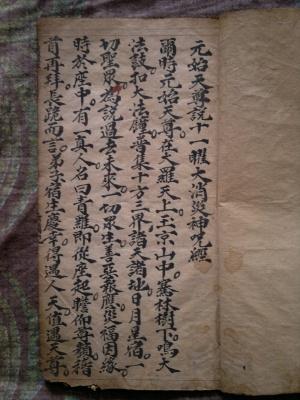 元始天尊說十一曜大消災神咒經
爾時元始天尊在大羅天上玉京山中騫林樹下鳴大
法鼓扣大法鐘普集十方三界諸天諸地日月星宿一
切聖眾為說過去未來一切眾生善惡報應災福因緣
時於座中有一真人名曰青羅即從座起瞻仰尊顏稽
首再拜長跪而言弟子宿生慶幸得遇人天值遇天尊